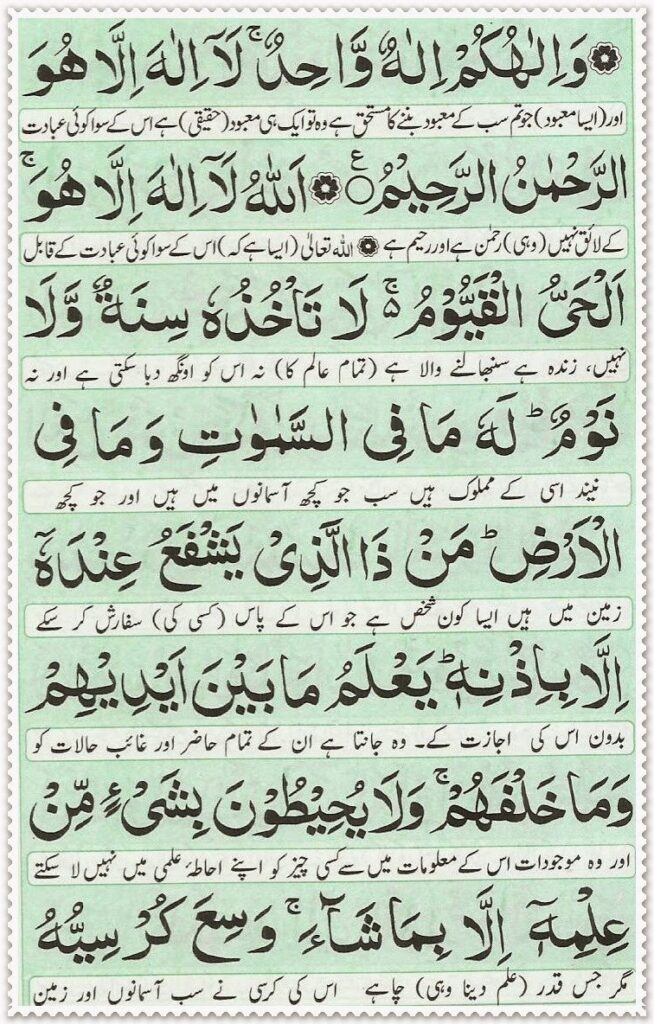 وَاِلٰـهُكُمْ اِلٰهٌ وَّاحِدٌ ۚ لَاۤ اِلٰهَ اِلَّا هُوَ
اور (ایسا معبود) جو تم سب کے معبود بننے کا مستحق ہے وہ تو ایک ہی معبود (حقیقی) ہے اس کے سوا کوئی عبادت
الرَّحْمٰنُ الرَّحِيْمُ ۝ ع اَللّٰهُ لَاۤ اِلٰهَ اِلَّا هُوَ ۚ
کے لائق نہیں (وہی) رحمٰن ہے اور رحیم ہے اللہ تعالیٰ (ایسا ہے کہ) اس کے سوا کوئی عبادت کے قابل
اَلْحَىُّ الْقَيُّوْمُ ۚ۬ لَا تَاْخُذُهٗ سِنَةٌ وَّلَا
نہیں، زندہ ہے سنبھالنے والا ہے (تمام عالم کا) نہ اس کو اونگھ دبا سکتی ہے اور نہ
نَوْمٌ ؕ لَهٗ مَا فِى السَّمٰوٰتِ وَمَا فِى
نیند اسی کے مملوک ہیں سب جو کچھ آسمانوں میں ہیں اور جو کچھ
الْاَرْضِ ؕ مَنْ ذَا الَّذِىْ يَشْفَعُ عِنْدَهٗۤ
زمین میں ہیں ایسا کون شخص ہے جو اس کے پاس (کسی کی) سفارش کر سکے
اِلَّا بِاِذْنِهٖ ؕ يَعْلَمُ مَا بَيْنَ اَيْدِيْهِمْ
بدون اس کی اجازت کے۔ وہ جانتا ہے ان کے تمام حاضر اور غائب حالات کو
وَمَا خَلْفَهُمْ ۚ وَلَا يُحِيْطُوْنَ بِشَىْءٍ مِّنْ
اور وہ موجودات اس کے معلومات میں سے کسی چیز کو اپنے احاطۂ علمی میں نہیں لا سکتے
عِلْمِهٖۤ اِلَّا بِمَا شَآءَ ۚ وَسِعَ كُرْسِيُّهُ
مگر جس قدر (علم دینا وہی) چاہے اس کی کرسی نے سب آسمانوں اور زمین